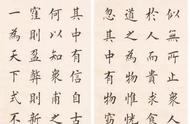 似無所止衆人
於人而貴食母
道之為物惟恍
忽其中有物窈
其中有信自古
何以知衆甫之
窪則盈弊則新
一為天下式不